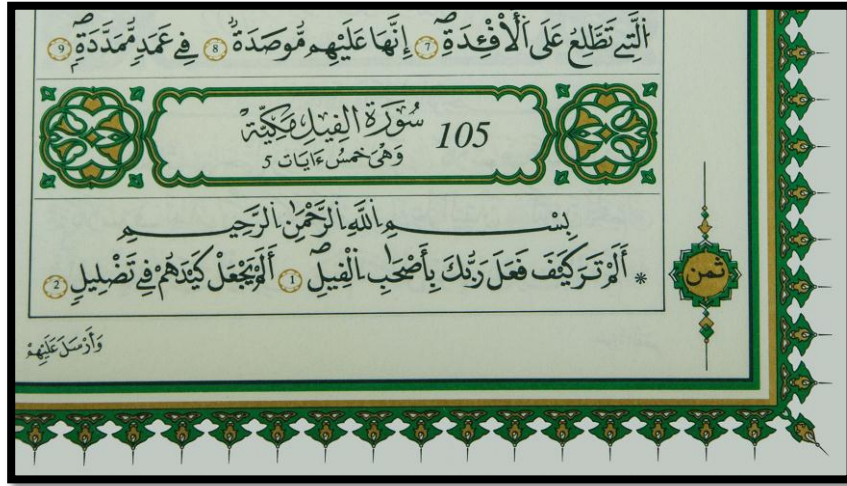 اَلتِے تَطَّلِعُ عَلَى اَلْأَفْـِٕدَةِۖ 7 إِنَّهَا عَلَيْهِم مُّوصَدَةٞ 8 فِے عَمَدٖ مُّمَدَّدَةِۖ 9
105 سُورَةُ الفِيلِ مَكِّيَّة
وَهْىَ خَمْسُ ءَايَات 5
بِسْــــــمِ اِللَّهِ اِلرَّحْمَٰنِ اِلرَّحِيـــــمِ
* أَلَمْ تَرَ كَيْفَ فَعَلَ رَبُّكَ بِأَصْحَٰبِ اِلْفِيلِۖ 1 أَلَمْ يَجْعَلْ كَيْدَهُمْ فِے تَضْلِيلٖ 2
ثمن
وَأَرْسَلَ عَلَيْهِمْ